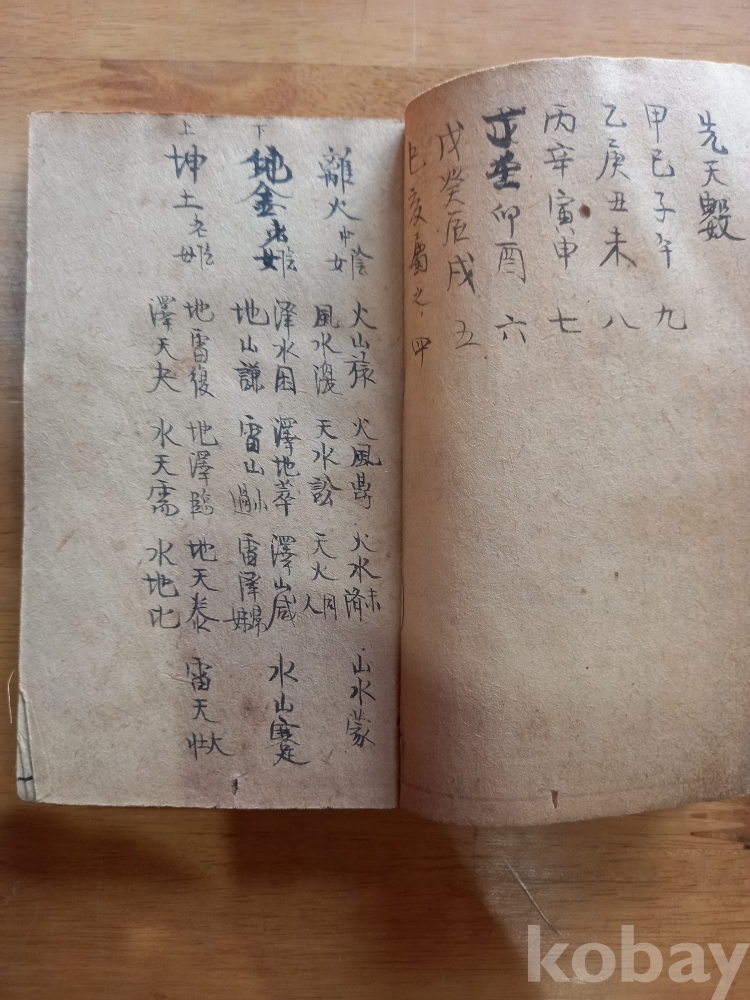 先天數
甲己子午 九
乙庚丑未 八
丙辛寅申 七
丁壬卯酉 六
戊癸辰戌 五
巳亥屬之, 四
離火 中陰女
火山旅 火風鼎 火水未濟 山水蒙
風水渙 天水訟 天火同人
下
金 少陰女
泽水困 澤地萃 澤山咸 水山蹇
地山謙 雷山小過 雷泽歸妹
上
坤土 老陰母
地雷復 地澤臨 地天泰 雷天大壯
澤天夬 水天需 水地比
kobay